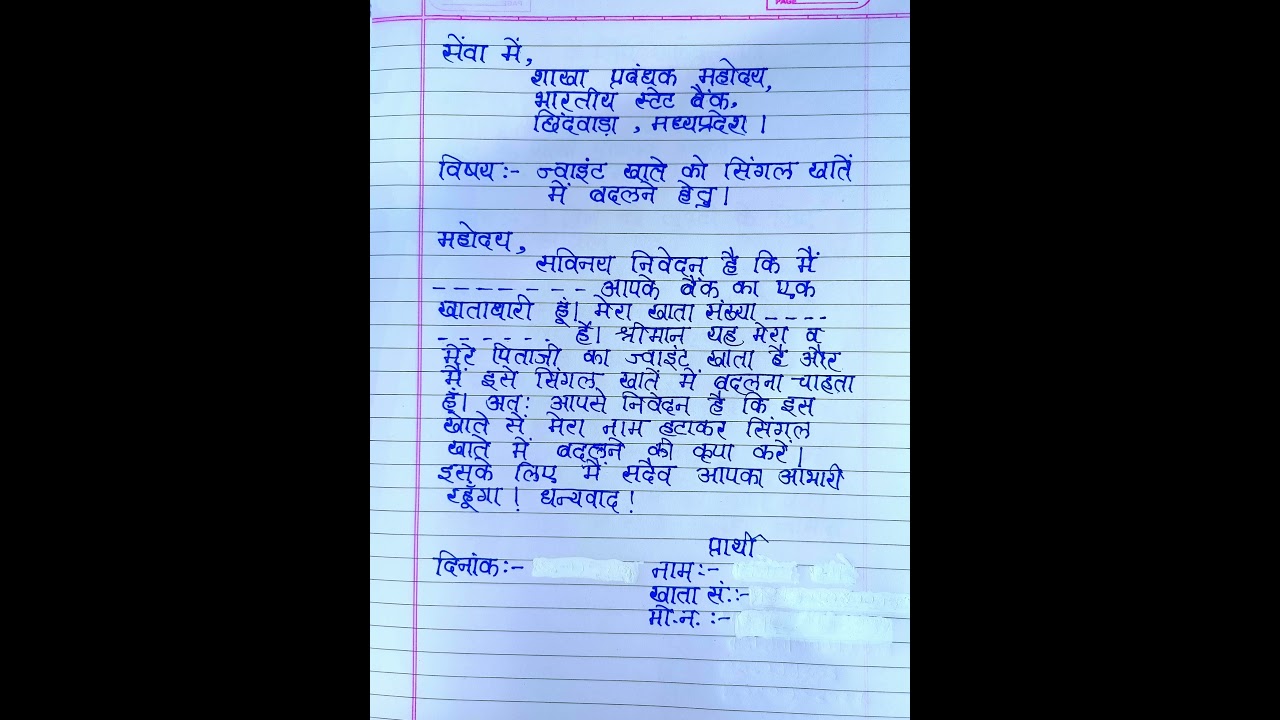 PAGE
सेंवा में,
शाखा प्रबंधक महोदय,
भारतीय स्टेट बैंक,
छिंदवाड़ा , मध्यप्रदेश ।
विषय:- ज्वाइंट खाते को सिंगल खातें
में बदलने हेतु।
महोदय,
सविनय निवेदन है कि मैं
- - - - - - - आपके बैंक का एक
खाताधारी हूं। मेरा खाता संख्या - - - -
- - - - - - है। श्रीमान यह मेरा व
मेरे पिताजी का ज्वाइंट खाता है और
मैं इसे सिंगल खातें में बदलना चाहता
हूँ। अत: आपसे निवेदन है कि इस
खाते सें मेरा नाम हटाकर सिंगल
खाते में बदलने की कृपा करें।
इसके लिए मैं सदैव आपका आभारी
रहूँगा। धन्यवाद!
प्रार्थी
दिनांक:- नाम:-
खाता सं.:-
मो.न. :-